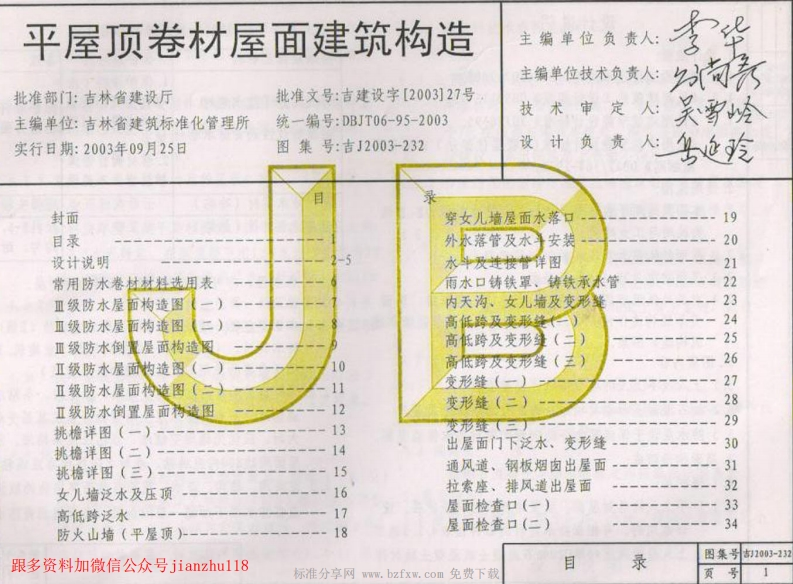 平屋顶卷材屋面建筑构造
批准部门:吉林省建设厅
批准文号:吉建设字[2003]27号
主编单位:吉林省建筑标准化管理所
统一编号:DBJT06-95-2003
实行日期:2003年09月25日
图 集 号:吉J2003-232
主编单位负责人:
主编单位技术负责人:
技 术 审 定 人:
设 计 负 责 人:
目 录
封面
目录 1
设计说明 2-5
常用防水卷材材料选用表 6
Ⅲ级防水屋面构造图(一) 7
Ⅲ级防水屋面构造图(二) 8
Ⅲ级防水倒置屋面构造图 9
Ⅱ级防水屋面构造图(一) 10
Ⅱ级防水屋面构造图(二) 11
Ⅱ级防水倒置屋面构造图 12
挑檐详图(一) 13
挑檐详图(二) 14
挑檐详图(三) 15
女儿墙泛水及压顶 16
高低跨泛水 17
防火山墙(平屋顶) 18
穿女儿墙屋面水落口 19
外水落管及水斗安装 20
水斗及连接管详图 21
雨水口铸铁罩、铸铁承水管 22
内天沟、女儿墙及变形缝 23
高低跨及变形缝(一) 24
高低跨及变形缝(二) 25
高低跨及变形缝(三) 26
变形缝(一) 27
变形缝(二) 28
变形缝(三) 29
出屋面门下泛水、变形缝 30
通风道、钢板烟囱出屋面 31
拉索座、排风道出屋面 32
屋面检查口(一) 33
屋面检查口(二) 34
JB
目 录
图集号 吉J2003-232
页 号 1
跟多资料加微信公众号jianzhu118
标准分享网 www.bzfxw.com 免费下载